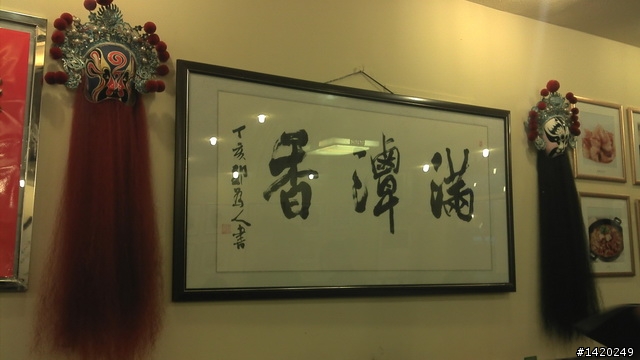 滿潭香
丁亥
人書
#1420249